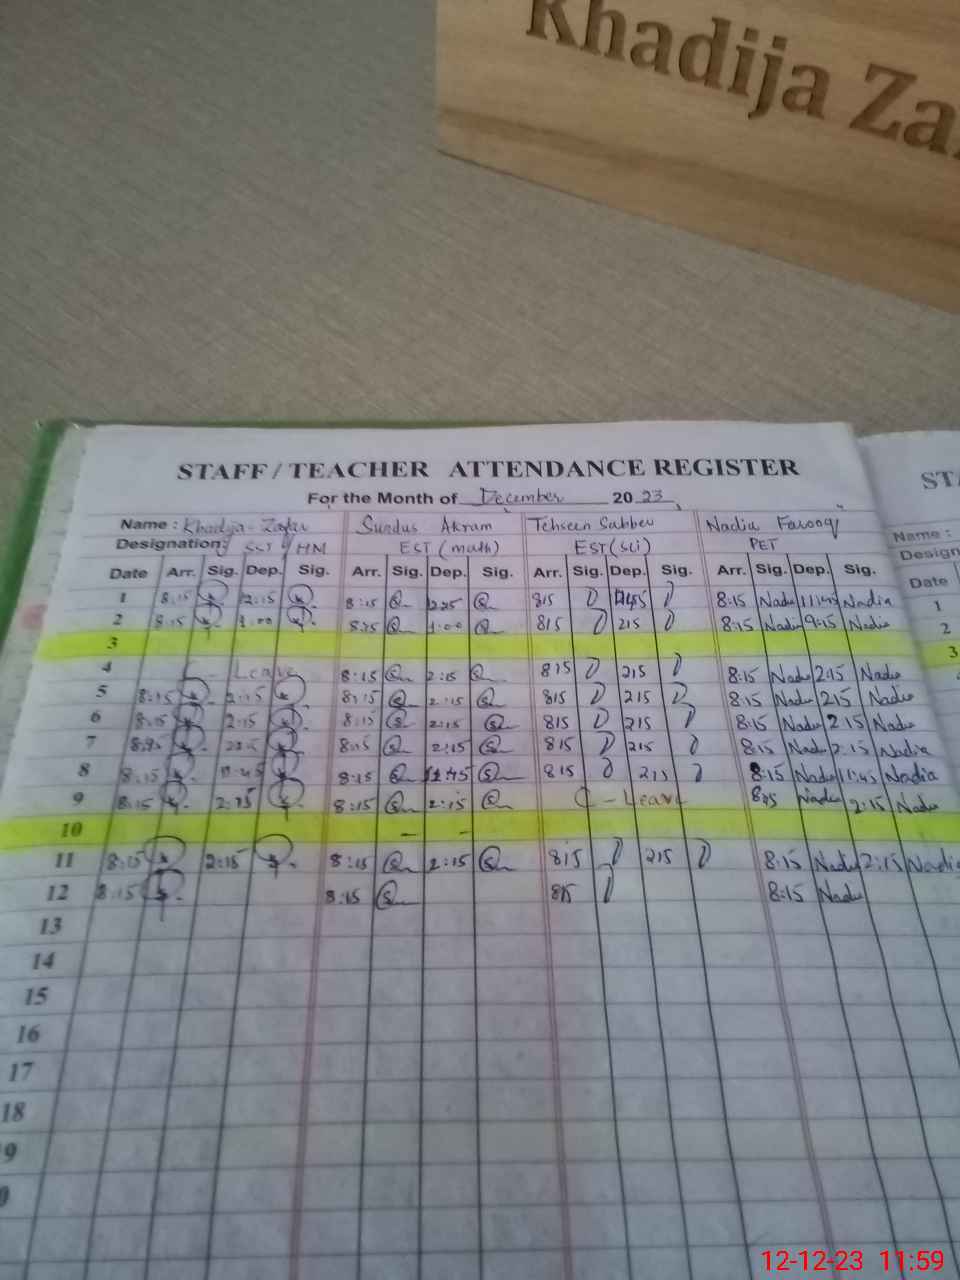 Khadija Za
STAFF / TEACHER ATTENDANCE REGISTER
STA
For the Month of December 2023
Name : Khadija Zafar Sundus Akram Tehseen Sabber Nadia Farooq
Name :
Designation: SST / HM EST (math) EST (sci) PET
Design
Date Arr. Sig. Dep. Sig. Arr. Sig. Dep. Sig. Arr. Sig. Dep. Sig. Arr. Sig. Dep. Sig.
Date
1 8:15 12:15 8:15 815 8:15 Nadia 11:45 Nadia
1
2 8:15 1:00 8:15 1:00 815 215 8:15 Nadia Nadia
2
3
3
4 C - Leave 8:15 2:15 815 215 8:15 Nadia 2:15 Nadia
5 8:15 2:15 8:15 2:15 815 215 8:15 Nadia 215 Nadia
6 8:15 2:15 8:15 2:15 815 215 8:15 Nadia 2:15 Nadia
7 8:15 8:15 2:15 815 215 8:15 Nadia 2:15 Nadia
8 8:15 8:15 815 215 8:15 Nadia 11:45 Nadia
9 8:15 2:15 8:15 2:15 C - Leave 8:15 Nadia 2:15 Nadia
10 - -
11 8:15 2:15 8:15 2:15 815 215 8:15 Nadia 2:15 Nadia
12 8:15 8:15 815 8:15 Nadia
13
14
15
16
17
18
9
0
12-12-23 11:59